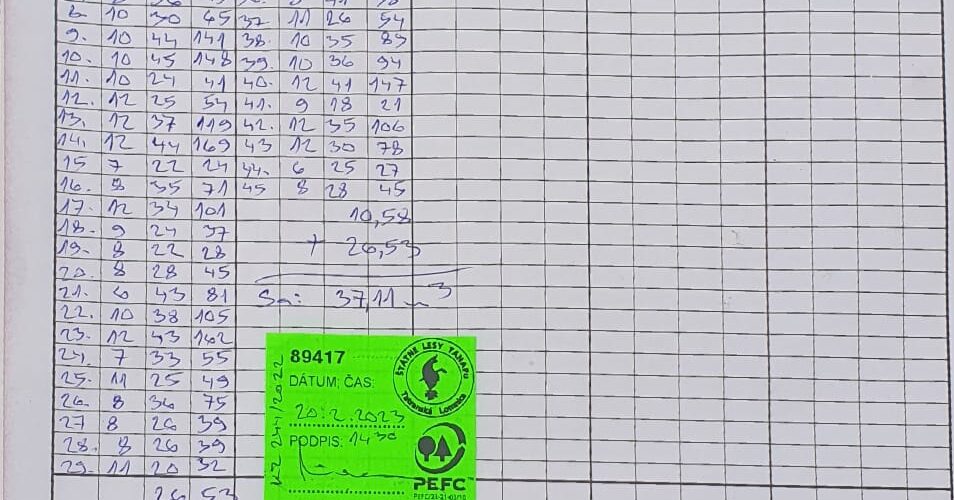 8. 10 30 65 37. 11 26 54
9. 10 44 141 38. 10 35 89
10. 10 45 148 39. 10 36 94
11. 10 24 41 40. 12 41 147
12. 12 25 54 41. 9 18 21
13. 12 37 119 42. 12 35 106
14. 12 44 169 43 12 30 78
15 7 22 24 44. 6 25 27
16. 8 35 71 45 8 28 45
17. 12 34 101 10,58
18. 9 24 37
19. 8 22 28 + 26,53
20. 8 28 45
21. 6 43 81 Sa: 37,11 m3
22. 10 38 105
23. 12 43 162
24. 7 33 55
25. 11 25 49
26. 8 36 75
27 8 26 39
28. 8 26 39
29. 11 20 32
26 53
89417
DÁTUM; ČAS:
20.2.2023
PODPIS: 14 30
244/2022
ŠTÁTNE LESY TANAPU
Tatranská Lomnica
PEFC